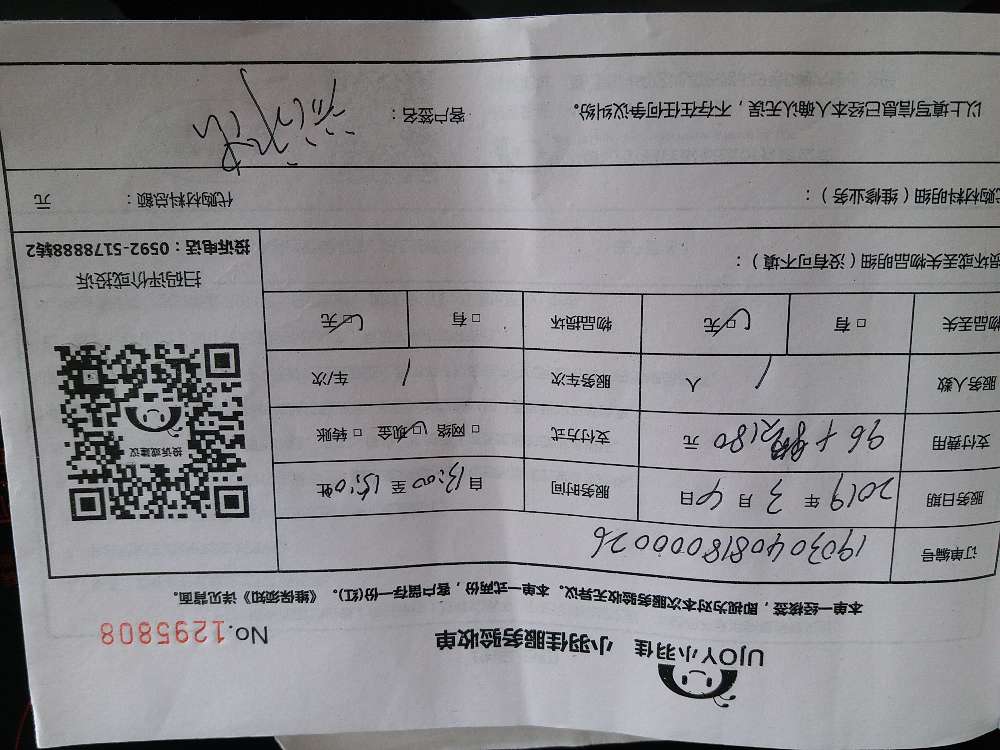 UJOY小羽佳 小羽佳服务验收单
No.1295808
本单一经核签，即视为对本次服务验收无异议。本单一式两份，客户留存一份(红)。《维保须知》详见背面。
订单编号 19030408180000026
服务日期 2019 年 3 月 4 日 服务时间 自 13:00 至 15:0 止
支付费用 96 + 2180 元 支付方式 □ 网络 ☑ 现金 □ 转账
服务人数 1 人 服务车次 1 车/次
物品丢失 □ 有 ☑ 无 物品损坏 □ 有 ☑ 无
损坏或丢失物品明细（没有可不填）：
投诉或建议
扫码评价或投诉
投诉电话：0592-5178888转2
代购材料明细（维修业务）： 代购材料总额： 元
以上填写信息已经本人确认无误，不存在任何争议纠纷。 客户签名：